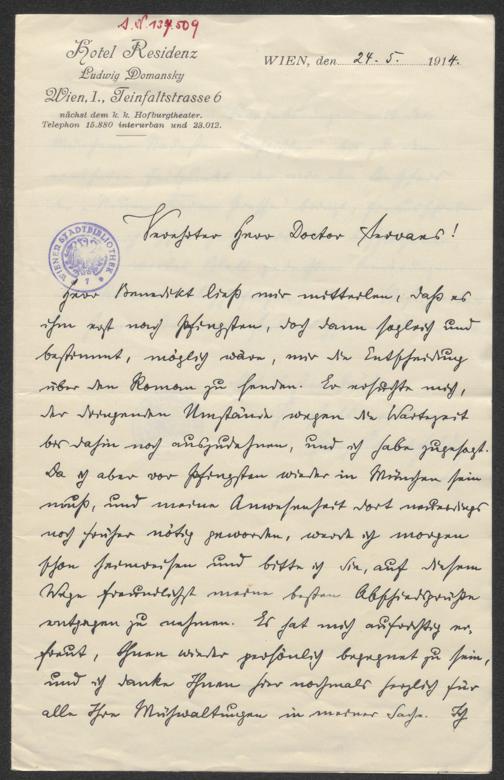 I.N. 137.509
Hotel Residenz
Ludwig Domansky
Wien, I., Teinfaltstrasse 6
nächst dem k. k. Hofburgtheater.
Telephon 15.880 interurban und 23.012.
WIEN, den 24. 5. 1914.
WIENER STADTBIBLIOTHEK
Verehrter Herr Doctor Servaes!
Herr Benedikt ließ mir mitteilen, daß es
ihm erst nach Pfingsten, doch dann sogleich und
bestimmt, möglich wäre, mir die Entscheidung
über den Roman zu senden. Er ersuchte mich,
der drängenden Umstände wegen die Wartezeit
bis dahin noch auszudehnen, und ich habe zugesagt.
Da ich aber vor Pfingsten wieder in München sein
muß, und meine Anwesenheit dort neuerdings
noch früher nötig geworden, werde ich morgen
schon heimreisen und bitte ich Sie, auf diesem
Wege freundlichst meine besten Abschiedsgrüße
entgegen zu nehmen. Es hat mich aufrichtig er-
freut, Ihnen wieder persönlich begegnet zu sein,
und ich danke Ihnen hier nochmals herzlich für
alle Ihre Mühwaltungen in meiner Sache. Ich